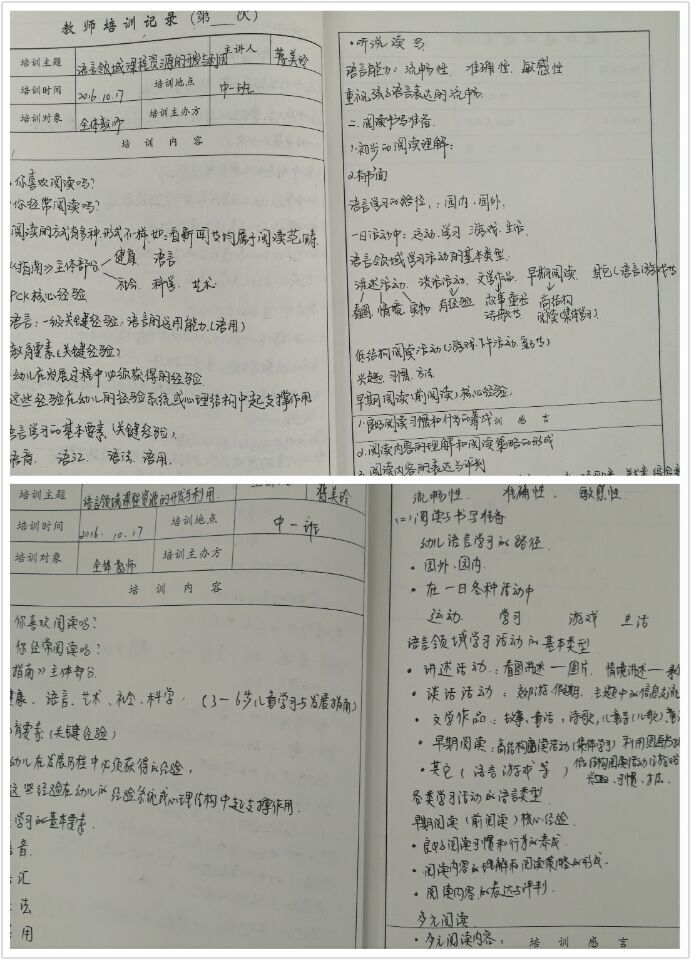 教师培训记录(第 次)
培训主题 语言领域课程资源的开发与利用 主讲人
培训时间 2016.10.17 培训地点 中一班
培训对象 全体教师 培训主办方
培训内容
·你喜欢阅读吗?
·你经常阅读吗?
阅读的方式有多种,形式不一样,如:看新闻等均属于阅读范畴
《指南》主体部分 健康 语言
社会 科学 艺术
PCK核心经验
语言:一级关键经验:语言的运用能力(语用)
教育要素(关键经验)
幼儿在发展过程中必须获得的经验
这些经验在幼儿的经验系统或心理结构中起支撑作用
语言学习的基本要素(关键经验)
语音 语汇 语法 语用
·听说读写
语言能力:流畅性 准确性 敏感性
重视孩子语言表达的流畅
二.阅读书写准备
1.初步的阅读理解:
2.书面
语言学习的路径:园内,园外,
一日活动中:运动.学习 游戏.生活
语言领域学习活动的基本类型
讲述活动 谈话活动 文学作品 早期阅读 其它(语言游戏等
看图 情境 实物 有经验 故事童话 高结构
诗歌 阅读(集体学习)
低结构阅读活动(游戏.下午活动
兴趣 习惯 方法
早期阅读(前阅读)核心经验
1.良好阅读习惯和行为的养成 训感言
2.阅读内容的理解和阅读策略的形成
3.阅读内容的表达与评判
培训主题 语言领域课程资源的开发与利用
培训时间 2016.10.17 培训地点 中一班
培训对象 全体教师 培训主办方
培训内容
你喜欢阅读吗?
你经常阅读吗?
指南》主体部分
康、语言、艺术、社会、科学 (3-6岁儿童学习与发展指南)
育要素(关键经验)
幼儿在发展历程中必须获得的经验,
这些经验在幼儿的经验系统或心理结构中起支撑作用.
学习的基本要素
音
汇
法
用
流畅性 准确性 敏感性
(二)阅读与书写准备
幼儿语言学习的路径
·园外、园内
·在一日各种活动中
运动 学习 游戏 生活
语言领域学习活动的基本类型
·讲述活动:看图讲述—图片 情境讲述—
·谈话活动: 假期、主题中的信息交流
·文学作品:故事、童话,诗歌,儿童诗(儿歌)
·早期阅读:高结构阅读活动(集体学习)利用图书
·其它(语言游戏等) 低结构阅读活动(游戏
兴趣、习惯、方法
各类学习活动的语言类型
早期阅读(前阅读)核心经验
·良好阅读习惯和行为的养成
·阅读内容的理解和阅读策略的形成.
·阅读内容的表达与评判.
多元阅读
·多元阅读内容: 培训感言